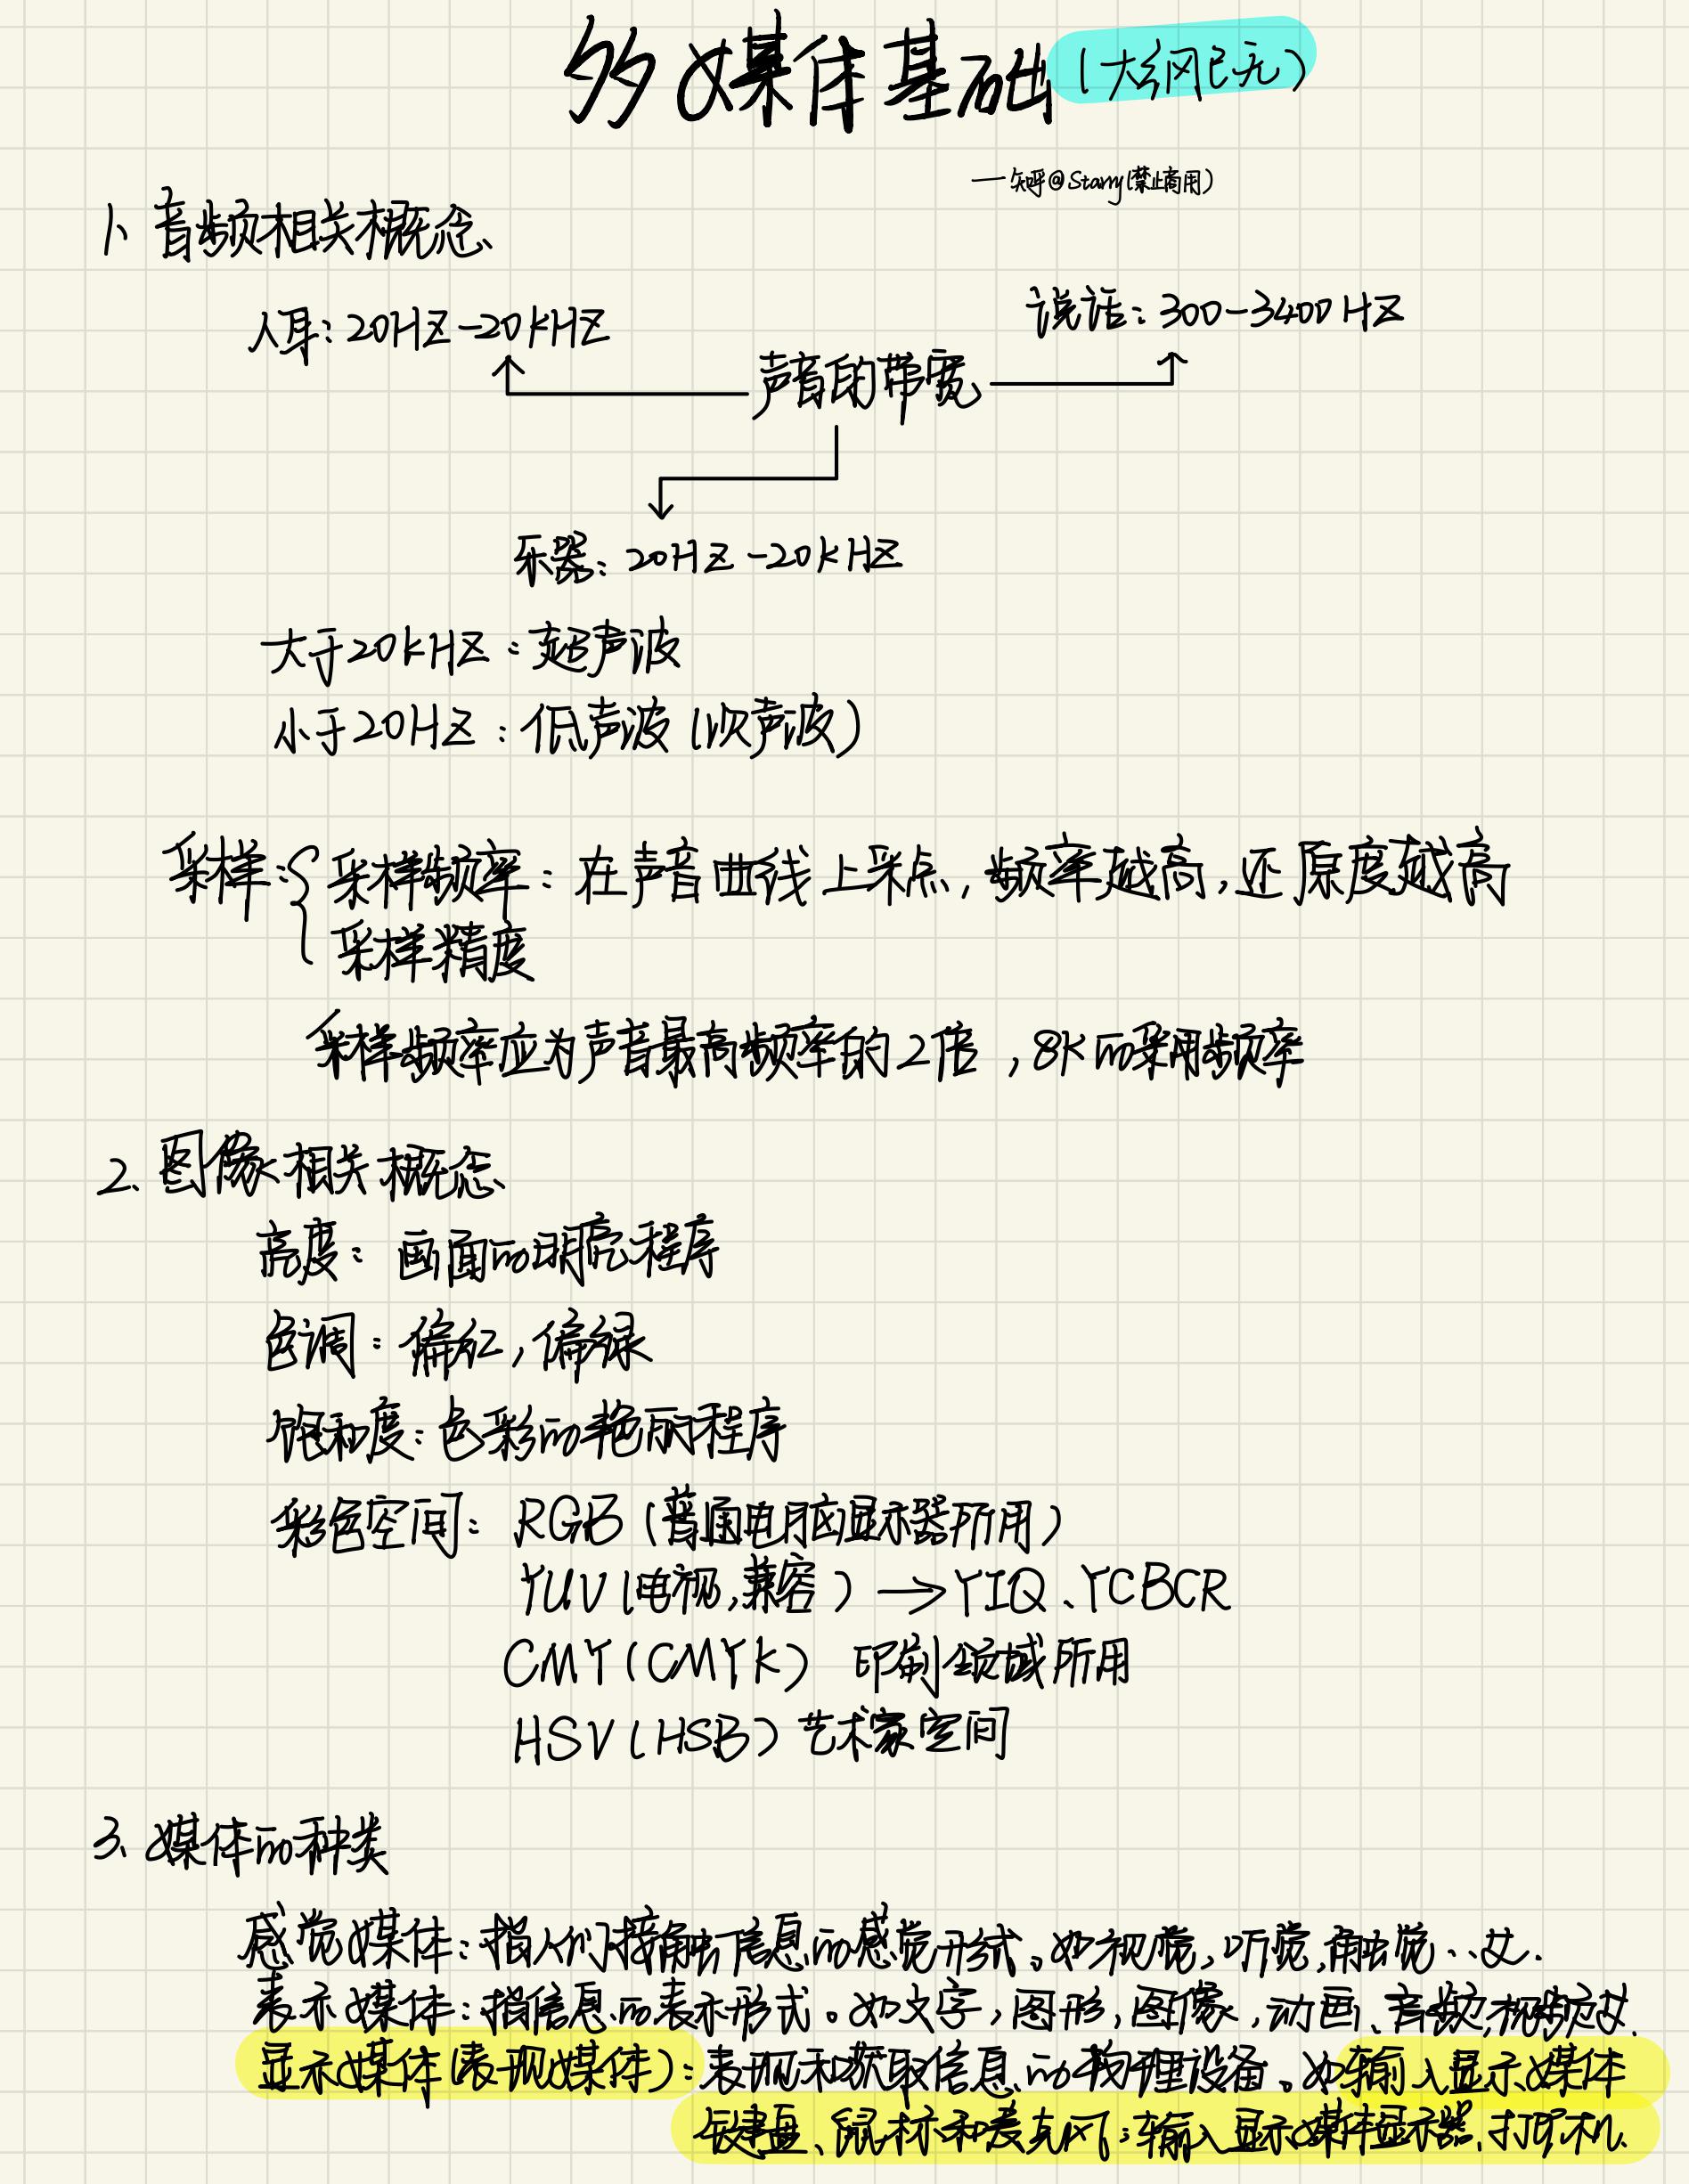 多媒体基础(大纲已无)
一知乎@Starry(禁止商用)
1、音频相关概念
人耳:20HZ-20KHZ
说话:300-3400HZ
声音的带宽
乐器:20HZ-20KHZ
大于20KHZ:超声波
小于20HZ:低声波(次声波)
采样:
采样频率:在声音曲线上采点,频率越高,还原度越高
采样精度
采样频率应为声音最高频率的2倍,8K的采用频率
2、图像相关概念
亮度:画面的明亮程序
色调:偏红,偏绿
饱和度:色彩的艳丽程序
彩色空间:RGB(普通电脑显示器所用)
YUV(电视,兼容)→YIQ、YCBCR
CMY(CMYK)印刷领域所用
HSV(HSB)艺术家空间
3、媒体的种类
感觉媒体:指人们接触信息的感觉形式。如视觉,听觉,触觉..
表示媒体:指信息的表示形式。如文字,图形,图像,动画、音频,视频
显示媒体(表现媒体):表现和获取信息的物理设备。如输入显示媒体
键盘、鼠标和麦克风;输入显示媒体显示器、打印机、